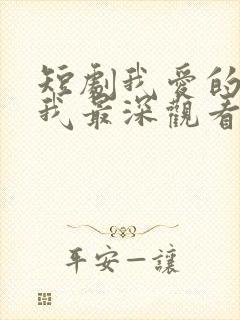 短劇我愛的
我最深觀看
平安一讓